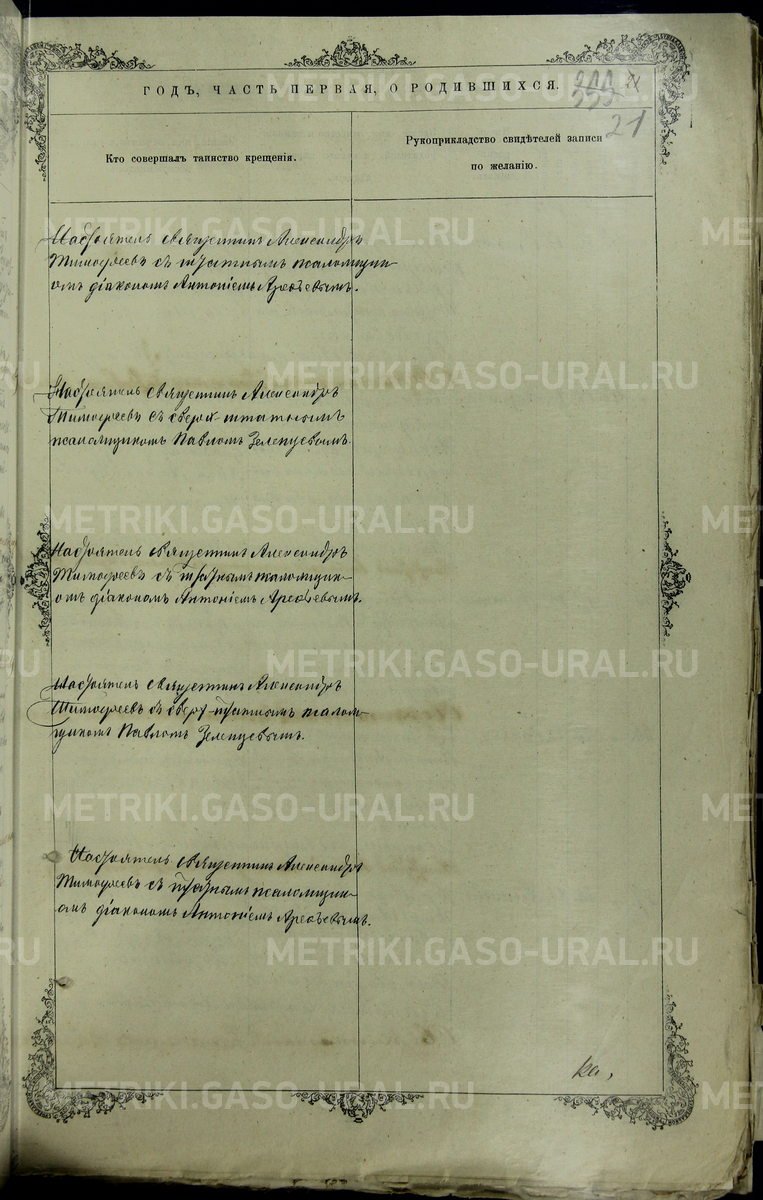 ГОДЪ, ЧАСТЬ ПЕРВАЯ, О РОДИВШИХСЯ.
21
Кто совершалъ таинство крещенія.
Рукоприкладство свидѣтелей записи
по желанію.
Настоятель священникъ Александръ
Тимофеевъ съ штатнымъ псаломщик-
омъ діакономъ Антоніемъ
Настоятель священникъ Александръ
Тимофеевъ съ сверх-штатнымъ
псаломщикомъ Павломъ Зеленцевымъ.
Настоятель священникъ Александръ
Тимофеевъ съ штатнымъ псаломщик-
омъ діакономъ Антоніемъ
Настоятель священникъ Александръ
Тимофеевъ съ сверх-штатнымъ псалом-
щикомъ Павломъ Зеленцевымъ.
Настоятель священникъ Александръ
Тимофеевъ съ штатнымъ псаломщик-
омъ діакономъ Антоніемъ
ка,
METRIKI.GASO-URAL.RU